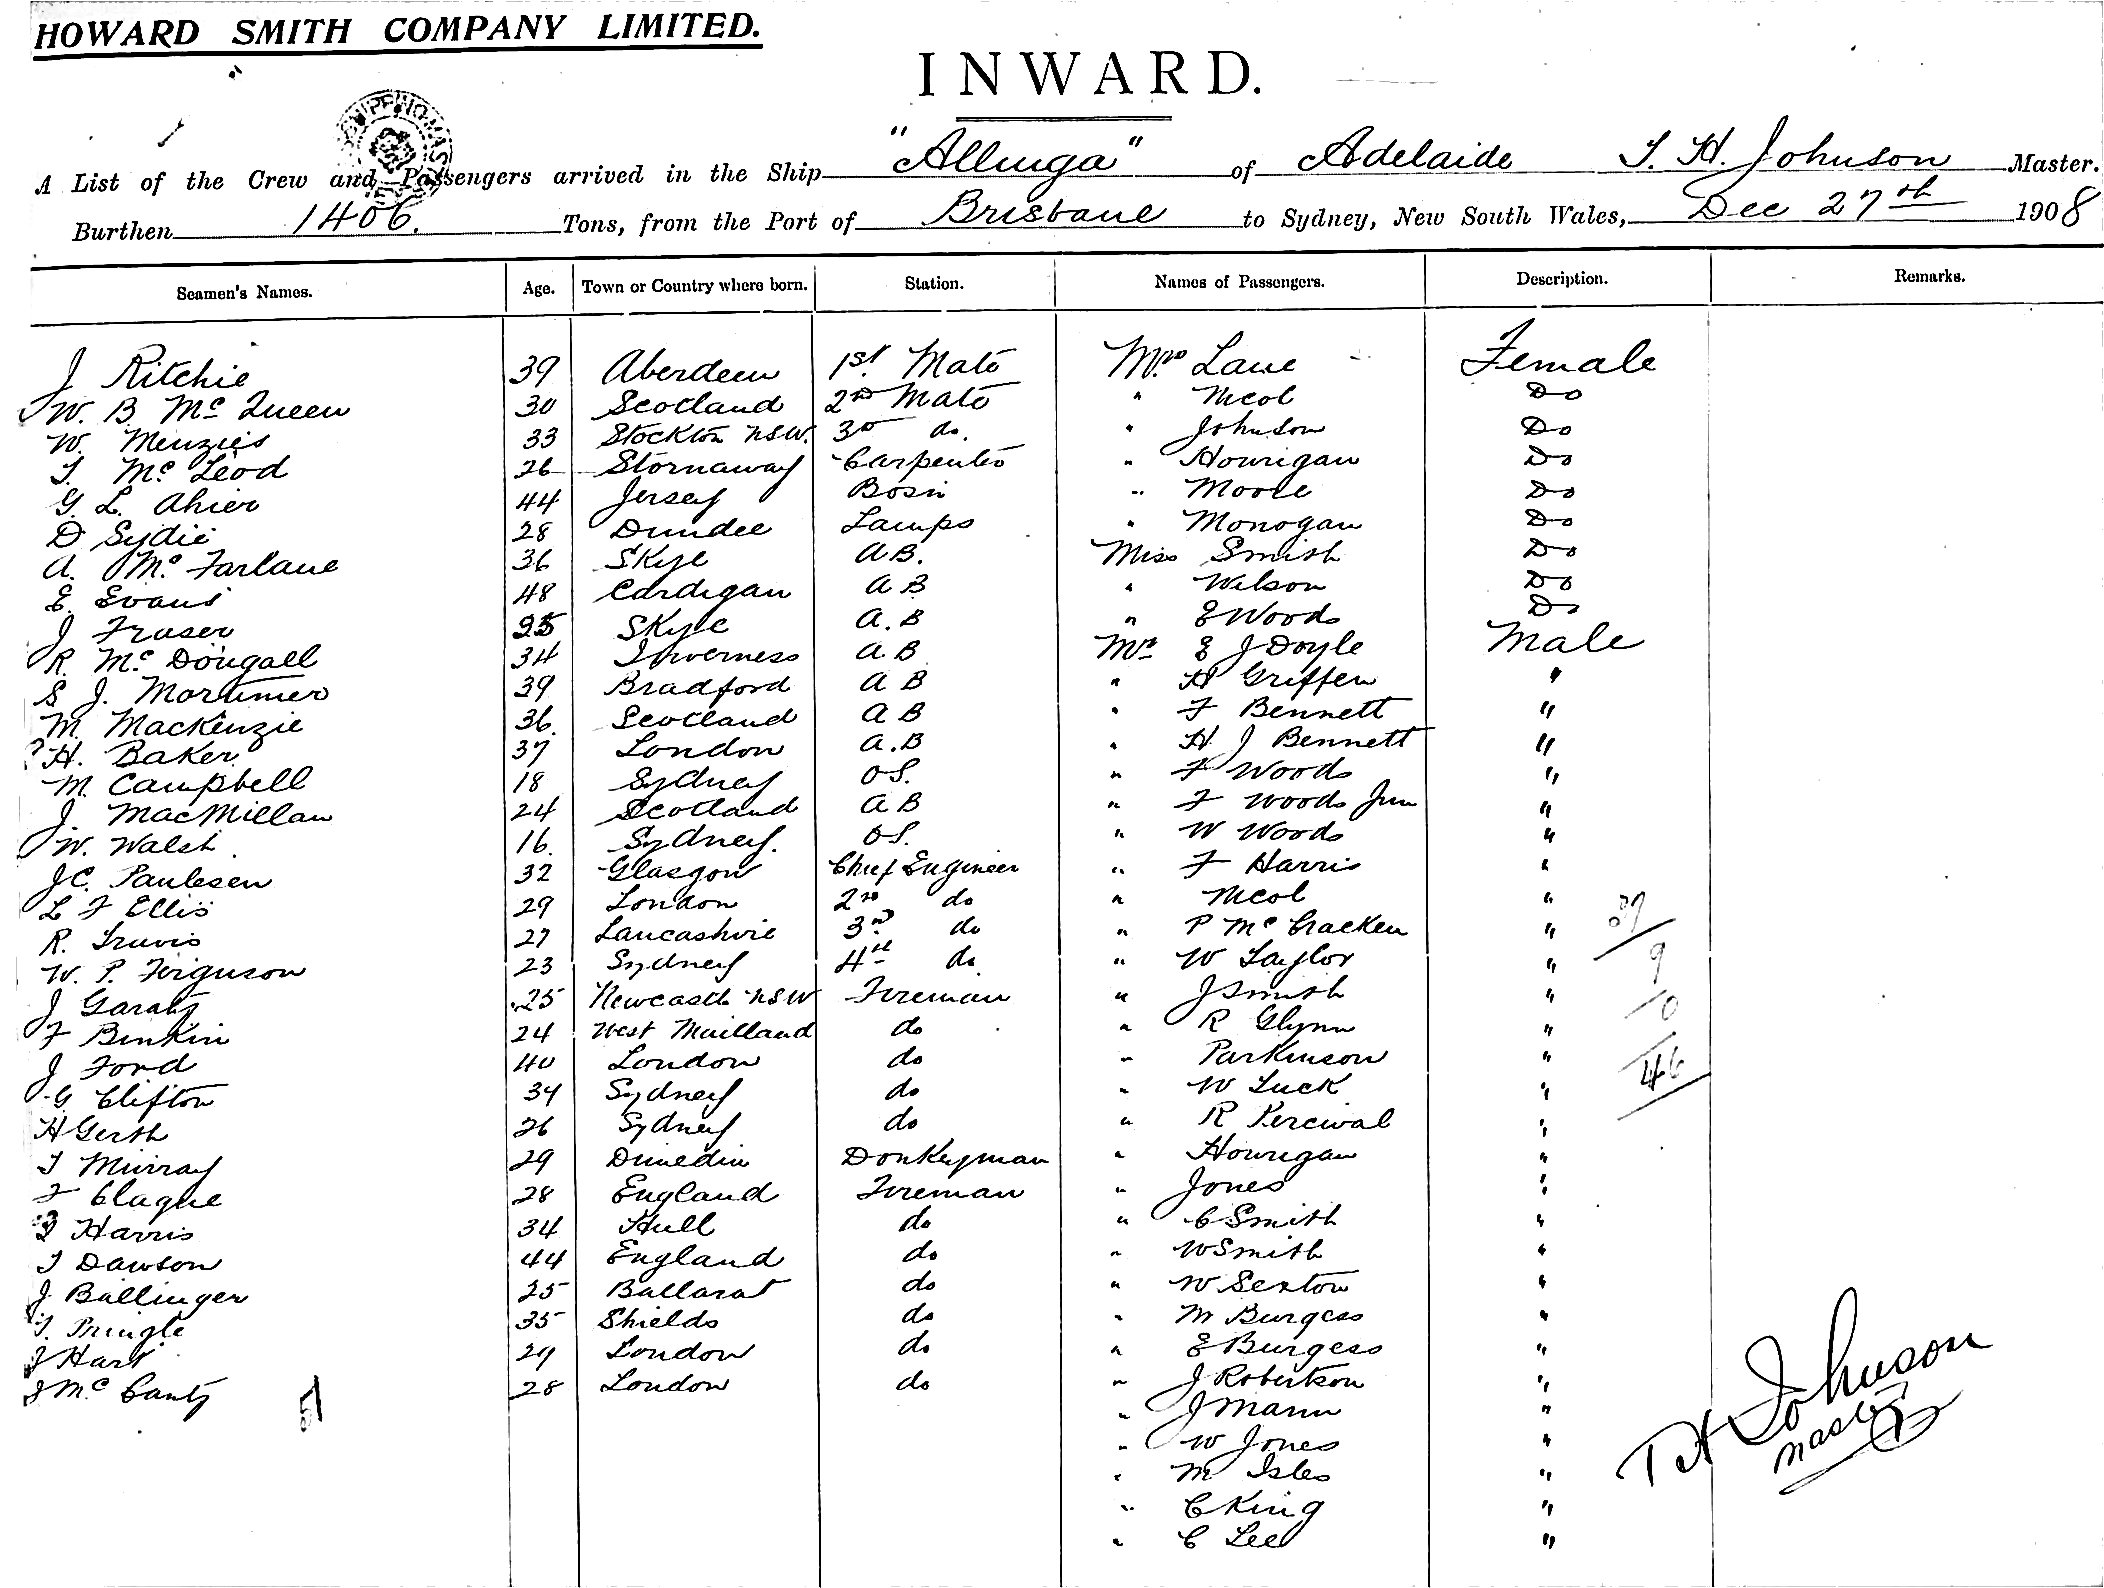 HOWARD SMITH COMPANY LIMITED.
INWARD.
A List of the Crew and Passengers arrived in the Ship "Allinga" of Adelaide T. H. Johnson Master.
Burthen 1406. Tons, from the Port of Brisbane to Sydney, New South Wales, Dec 27th 1908
Seamen's Names. Age. Town or Country where born. Station. Names of Passengers. Description. Remarks.
J Ritchie 39 Aberdeen 1st Mate Mrs Lane Female
W. B. McQueen 30 Scotland 2nd Mate " Nicol Do
W. Menzies 33 Stockton NSW. 3rd do. " Johnson Do
T. McLeod 26 Stornaway Carpenter " Hourigan Do
G. L. Ahier 44 Jersey Bosn " Moore Do
D Sydie 28 Dundee Lamps " Monogan Do
A. McFarlane 36 Skye AB. Miss Smith Do
E. Evans 48 Cardigan AB " Wilson Do
J Fraser Skye A.B " E Woods Do
R. McDougall 34 Inverness AB Mr E J Doyle Male
S J. Mortimer 39 Bradford AB " H Griffen "
M. Mackenzie 36 Scotland AB " F Bennett "
H. Baker 37 London A.B " H J Bennett "
M. Campbell 18 Sydney OS. " F Woods "
J. MacMillan 24 Scotland AB " F Woods Jun "
W. Walsh 16 Sydney. OS. " W Woods "
J C. Paulesen 32 Glasgow Chief Engineer " F Harris "
L F Ellis 29 London 2nd do " Nicol "
R. Travis 27 Lancashire 3rd do " P McCracken "
W. P. Ferguson 23 Sydney 4th do " W Taylor "
J Garaty 25 Newcastle NSW Fireman " J Smith "
F Binkin 24 West Maitland do " R Glynn "
J Ford 40 London do " Parkinson "
G Clifton 34 Sydney do " W Luck "
H Gerth 26 Sydney do " R Percival "
T Murray 29 Dunedin Donkeyman " Hourigan "
F Clague 28 England Fireman " Jones "
Harris 34 Hull do " C Smith "
T Dawson 44 England do " W Smith "
J Ballinger 25 Ballarat do " W Sexton "
T. Pringle 35 Shields do " M Burgess "
J Hart 29 London do " E Burgess "
J McCanty 28 London do " J Robertson "
" J Mann "
" W Jones "
" M Isles "
" C King "
" C Lee "
37
9
10
46
T H Johnson
Master